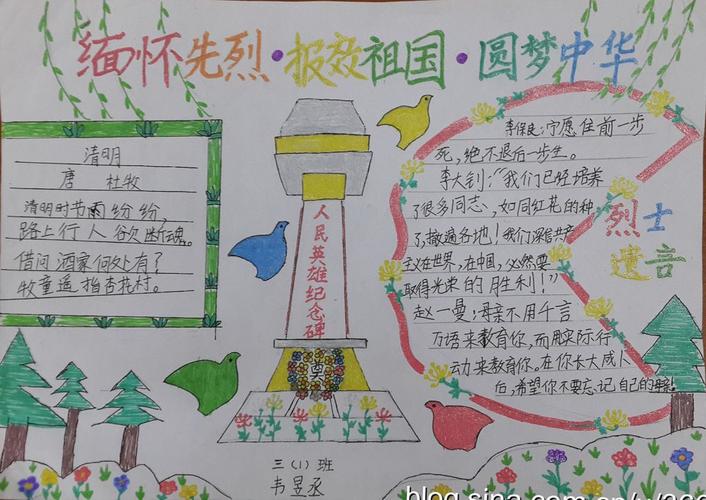 缅怀先烈·报效祖国·圆梦中华
清明
唐 杜牧
清明时节雨纷纷,
路上行人欲断魂。
借问酒家何处有?
牧童遥指杏花村。
人民英雄纪念碑
李保良:宁愿往前一步
死,绝不退后一步生。
李大钊:“我们已经培养
了很多同志,如同红花的种
了,撒遍各地!我们深信共产
主义在世界,在中国,必然要
取得光荣的胜利!”
赵一曼:母亲不用千言
万语来教育你,而用实际行
动来教育你。在你长大成人
后,希望你不要忘记自己的
烈士
遗言
三(1)班
韦昱丞